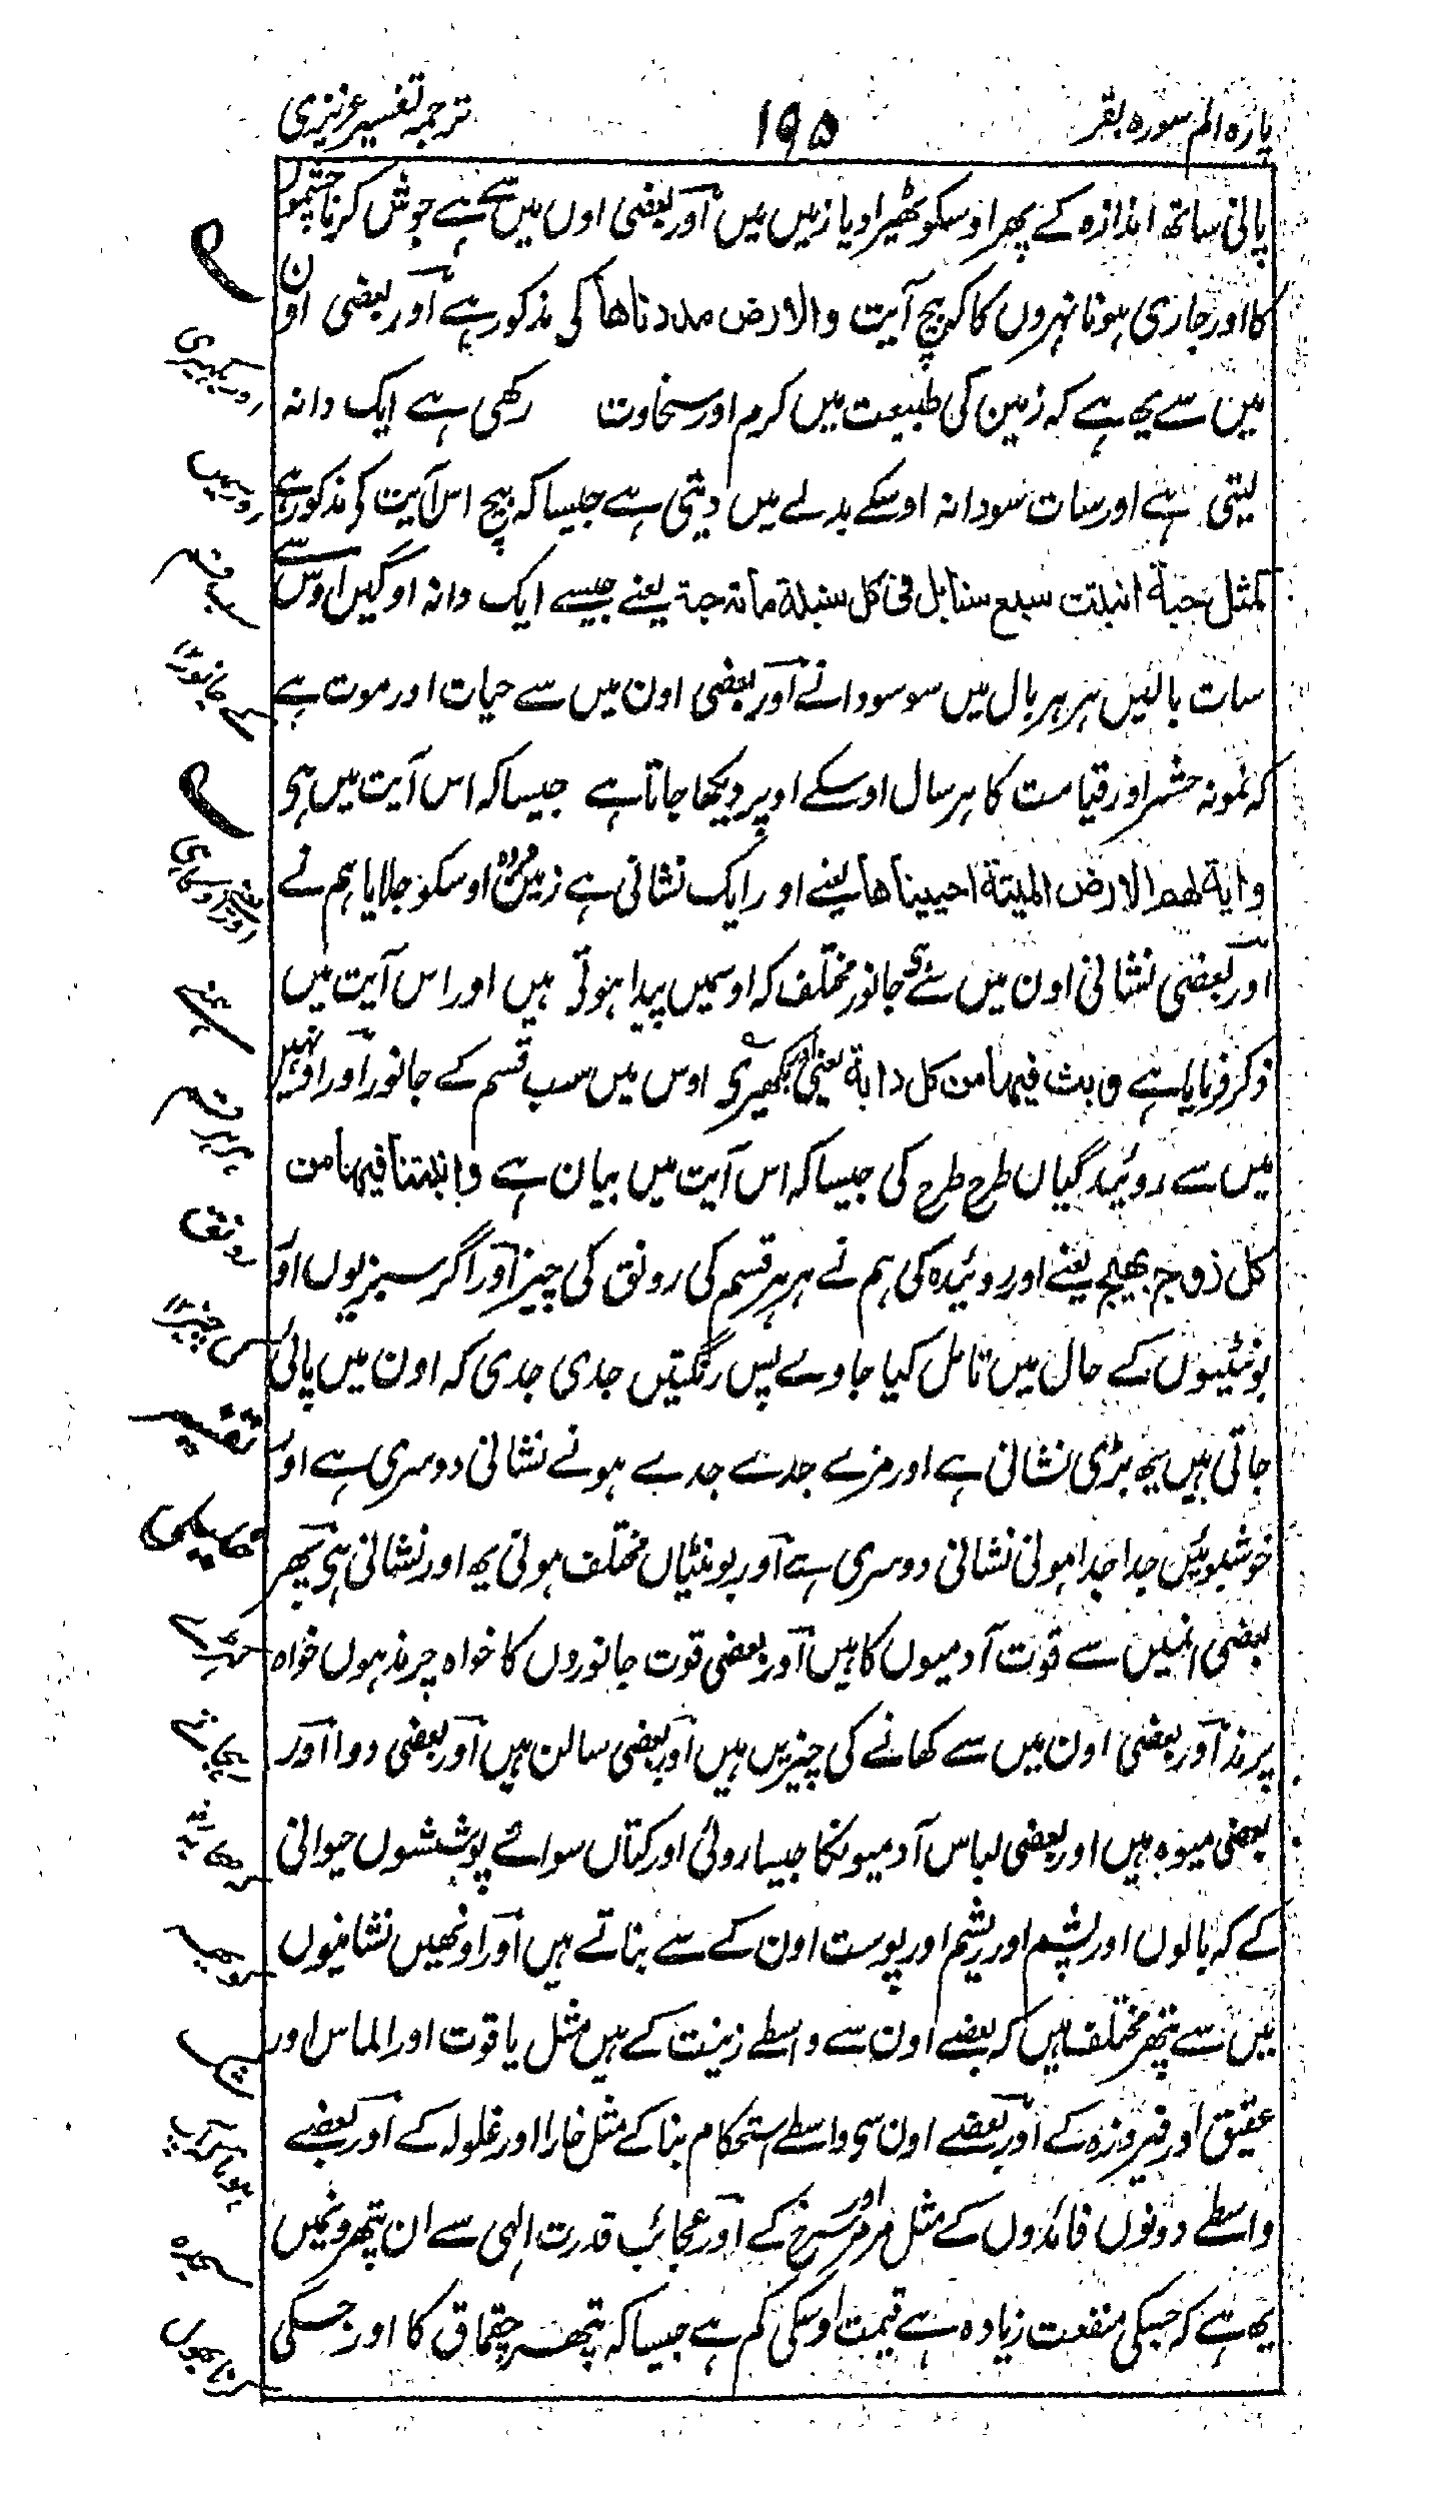 پاره الم سوره بقر
۱۹۵
ترجمه تفسیر عزیزی
پانی ساتھ اندازه کے پھر اوسکو ٹھیرا دیا زمیں میں اور بعضی اوں میں سے ہے جوش کرنا چشموں
کا اور جاری ہونا نہروں کا کہ بیچ آیت والارض مددناها کی مذکور ہے اور بعضی اون
میں سے یہ ہے کہ زمین کی طبیعت میں کرم اور سخاوت رکھی ہے ایک دانہ
لیتی ہے اور سات سو دانہ اوسکے بدلے میں دیتی ہے جیسا کہ بیچ اس آیت کی مذکور ہے
کمثل حبة انبتت سبع سنابل فی کل سنبلة مائة حبة یعنے جیسے ایک دانہ اوگیں اوس سے
سات بالیں ہر ہر بال میں سو سو دانے اور بعضی اون میں سے حیات اور موت ہے
کہ نمونہ حشر اور قیامت کا ہر سال اوسکے اوپر دیکھا جاتا ہے جیسا کہ اس آیت میں ہی
وایة لهم الارض المیتة احییناها یعنے اور ایک نشانی ہے زمین مرده اوسکو جلایا ہم نے
اور بعضی نشانی اون میں سے جانور مختلف کہ اوسمیں پیدا ہوتی ہیں اور اس آیت میں
ذکر فرمایا ہے و بث فیها من کل دابة یعنی اور بکھیری اوس میں سب قسم کے جانور اور اونہیں
میں سے روئیدگیان طرح طرح کی جیسا کہ اس آیت میں بیان ہے وانبتنا فیها من
کل زوج بهیج یعنے اور روئیده کی ہم نے ہر ہر قسم کی رونق کی چیز اور اگر سبزیوں اور
بوٹیئوں کے حال میں تامل کیا جاوے پس رنگتیں جدی جدی کہ اون میں پائی
جاتی ہیں یہ بڑی نشانی ہے اور مزے جدے جدے ہونے نشانی دوسری ہے اور
خوشبوئیں جدا جدا ہونی نشانی دوسری ہے اور بونٹیاں مختلف ہوتی یہ اور نشانی ہی پھر
بعضی انمیں سے قوت آدمیوں کا ہیں اور بعضی قوت جانوروں کا خواه چرند ہوں خواه
پرند اور بعضی اون میں سے کھانے کی چیزیں ہیں اور بعضی سالن ہیں اور بعضی دوا اور
بعضی میوه ہیں اور بعضی لباس آدمیونکا جیسا روئی اور کتاں سوائے پوششوں حیوانی
کے کہ بالوں اور پشم اور ریشم اور پوست اون کے سے بناتے ہیں اور اونھیں نشانیوں
میں سے پتھر مختلف ہیں کہ بعضے اون سے واسطے زینت کے ہیں مثل یاقوت اور الماس اور
عقیق اور فیروزه کے اور بعضے اون سی واسطے استحکام بنا کے مثل خارا اور غلولہ کے اور بعضے
واسطے دونوں فائدوں کے مثل مرمر اور سرخ کے اور عجائب قدرت الٰہی سے ان پتھرونمیں
یہ ہے کہ جسکی منفعت زیاده ہے قیمت اوسکی کم ہے جیسا کہ پتھر چقماق کا اور جسکی